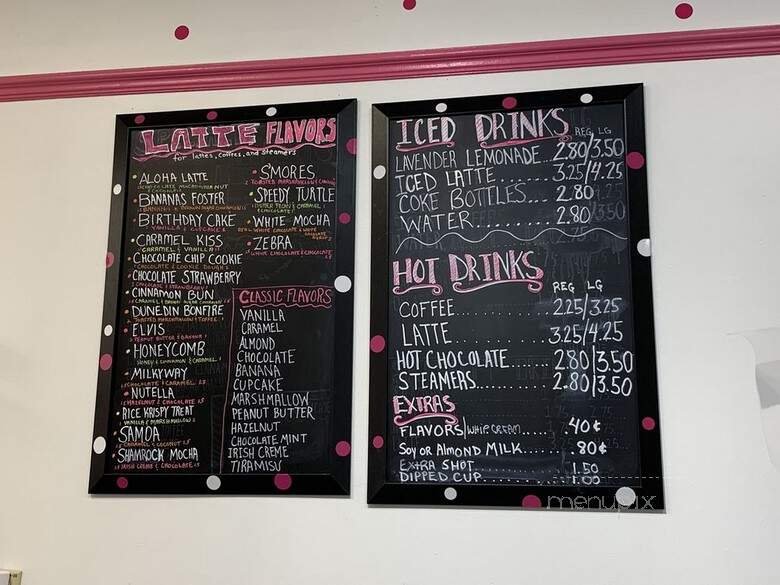 LATTE FLAVORS
for lattes, coffees, and steamers
• ALOHA LATTE
CHOCOLATE MACADAMIA NUT
& CHOCOLATE
• BANANAS FOSTER
• BIRTHDAY CAKE
VANILLA & CUPCAKE
• CARAMEL KISS
CARAMEL & VANILLA
• CHOCOLATE CHIP COOKIE
CHOCOLATE & COOKIE DOUGH
• CHOCOLATE STRAWBERRY
CHOCOLATE & STRAWBERRY
• CINNAMON BUN
• DUNEDIN BONFIRE
TOASTED MARSHMALLOW & TOFFEE
• ELVIS
PEANUT BUTTER & BANANA
• HONEYCOMB
HONEY & CINNAMON & CARAMEL
• MILKYWAY
CHOCOLATE & CARAMEL
• NUTELLA
HAZELNUT & CHOCOLATE
• RICE KRISPY TREAT
VANILLA & MARSHMALLOW
• SAMOA
CARAMEL & COCONUT
• SHAMROCK MOCHA
IRISH CREME & CHOCOLATE
• S'MORES
TOASTED MARSHMALLOW &
• SPEEDY TURTLE
CARAMEL
& CHOCOLATE
• WHITE MOCHA
WHITE CHOCOLATE &
• ZEBRA
WHITE CHOCOLATE &
CLASSIC FLAVORS
VANILLA
CARAMEL
ALMOND
CHOCOLATE
BANANA
CUPCAKE
MARSHMALLOW
PEANUT BUTTER
HAZELNUT
CHOCOLATE MINT
IRISH CREME
TIRAMISU
ICED DRINKS REG LG
LAVENDER LEMONADE...2.80/3.50
ICED LATTE...3.25/4.25
COKE BOTTLES...2.80
WATER...2.80
HOT DRINKS REG LG
COFFEE...2.25/3.25
LATTE...3.25/4.25
HOT CHOCOLATE...2.80/3.50
STEAMERS...2.80/3.50
EXTRAS
FLAVORS/WHIP CREAM...40¢
SOY OR ALMOND MILK...80¢
EXTRA SHOT...1.50
DIPPED CUP...1.00
menupix